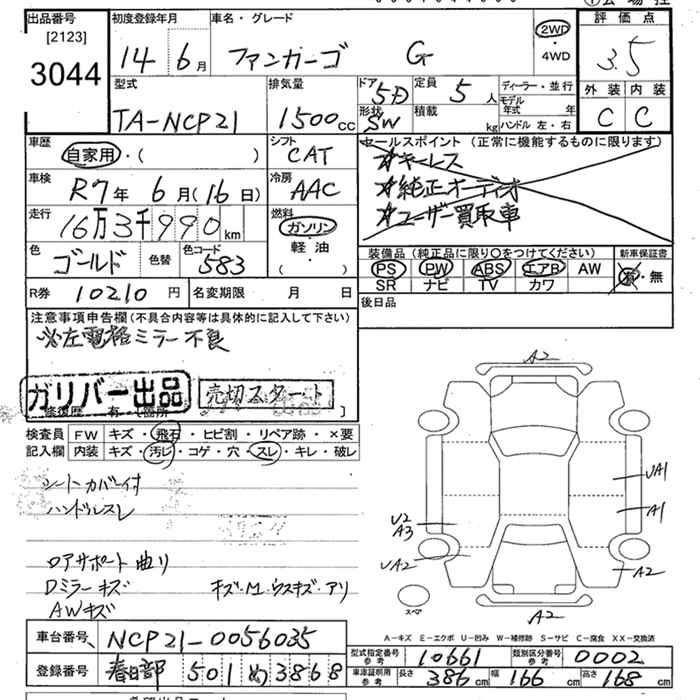 出品番号
[2123]
3044
初度登録年月
14年 6月
車名・グレード
ファンカーゴ G
2WD
・
4WD
評価点
3.5
外装 内装
C C
型式
TA-NCP21
排気量
1500cc
ドア
5D
形状
SW
定員
5人
積載
kg
ディーラー・並行
モデル年式 年
ハンドル 左・右
車歴
自家用・( )
シフト
CAT
車検
R7年 6月(16日)
冷房
AAC
走行
16万3千990km
燃料
ガソリン
・
軽・油
( )
色
ゴールド
色替
色コード
583
セールスポイント (正常に機能するものに限ります)
☆キーレス
☆純正オーディオ
☆ユーザー買取車
装備品 (純正品に限り○をつけてください)
新車保証書
PS PW ABS エアB AW
SR ナビ TV カワ
有・無
後日品
R券 10210円
名変期限 月 日
注意事項申告欄 (不具合内容等は具体的に記入して下さい)
※左電格ミラー不良
ガリバー出品
売切スタート
修復歴 有・[箇所 ]
検査員
記入欄
FW キズ・飛石・ヒビ割・リペア跡・×要
内装 キズ・汚レ・コゲ・穴・スレ・キレ・破レ
シートカバー付
ハンドルスレ
ロアサポート曲リ
Dミラーキズ キズ・M・ウスキズ・アリ
AWキズ
A2
UA1
A1
U2
A3
UA2
A2
スペア
A2
A-キズ E-エクボ U-凹み W-補修跡 S-サビ C-腐食 XX-交換済
車台番号 NCP21-0056035
登録番号 春日部 501 め 3868
型式指定番号
参考
10661
類別区分番号
参考
0002
車庫証明用
参考
長さ 386cm 幅 166cm 高さ 168cm